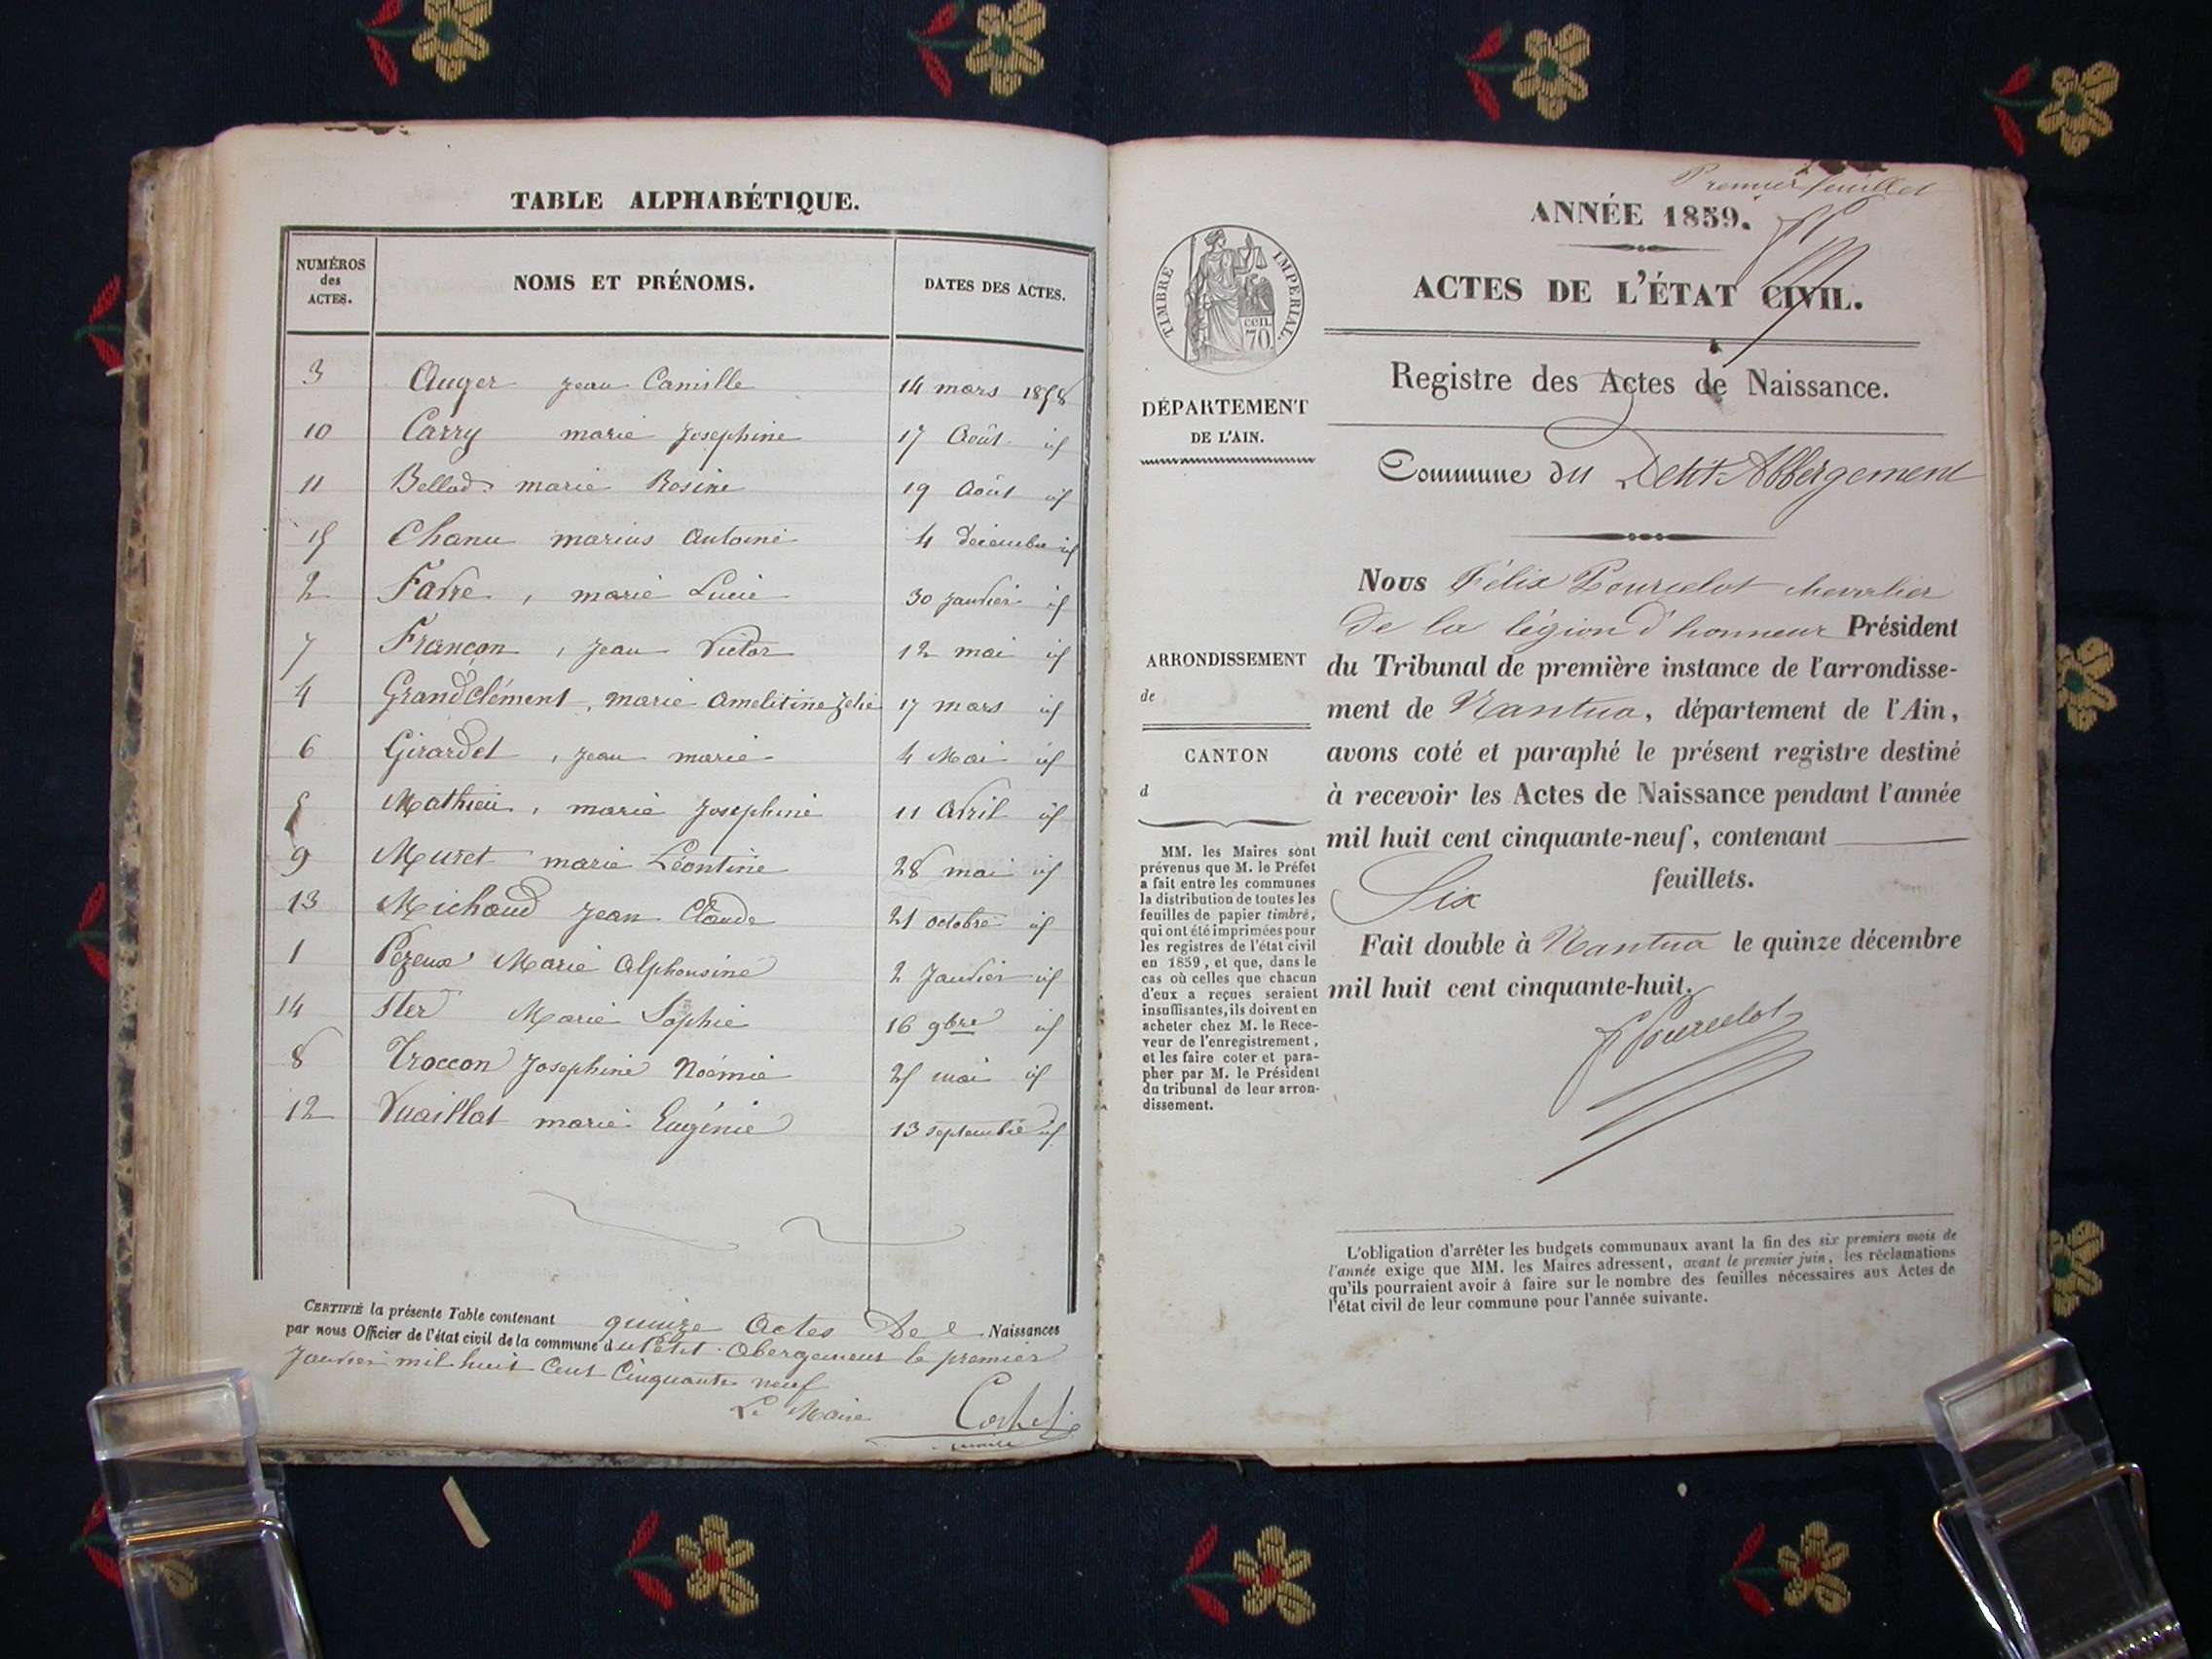 TABLE ALPHABÉTIQUE.
NUMÉROS
des
ACTES.
NOMS ET PRÉNOMS.
DATES DES ACTES.
3 Auger Jean Camille 14 mars 1858
10 Carry marie Josephine 17 Août id
11 Bellod marie Rosine 19 Août id
15 Chanu marius Antoine 4 décembre id
2 Favre, marie Lucie 30 janvier id
7 Françon, Jean Victor 12 mai id
4 Grandclément, marie Amelitine Zelie 17 mars id
6 Girardet, Jean marie 4 Mai id
5 Mathieu, marie Josephine 11 Avril id
9 Muret marie Léontine 28 mai id
13 Michaud Jean Claude 21 octobre id
1 Pezeux Marie Alphonsine 2 Janvier id
14 Ster Marie Sophie 16 9bre id
8 Troccon Josephine Noémie 25 mai id
12 Vuaillat marie Eugénie 13 septembre id
CERTIFIÉ la présente Table contenant quinze Actes De Naissances
par nous Officier de l'état civil de la commune du Petit-Abergement le premier
Janvier mil huit Cent Cinquante neuf
Le Maire
Premier feuillet
ANNÉE 1859.
ACTES DE L'ÉTAT CIVIL.
TIMBRE IMPÉRIAL.
cen.
70.
Registre des Actes de Naissance.
DÉPARTEMENT
DE L'AIN.
Commune du Petit-Abbergement
Nous Félix Pourcelot chevalier
de la légion d'honneur Président
du Tribunal de première instance de l'arrondisse-
ment de Nantua, département de l'Ain,
avons coté et paraphé le présent registre destiné
à recevoir les Actes de Naissance pendant l'année
mil huit cent cinquante-neuf, contenant
Six feuillets.
Fait double à Nantua le quinze décembre
mil huit cent cinquante-huit.
F Pourcelot
ARRONDISSEMENT
de
CANTON
d
MM. les Maires sont
prévenus que M. le Préfet
a fait entre les communes
la distribution de toutes les
feuilles de papier timbré,
qui ont été imprimées pour
les registres de l'état civil
en 1859, et que, dans le
cas où celles que chacun
d'eux a reçues seraient
insuffisantes, ils doivent en
acheter chez M. le Rece-
veur de l'enregistrement,
et les faire coter et para-
pher par M. le Président
du tribunal de leur arron-
dissement.
L'obligation d'arrêter les budgets communaux avant la fin des six premiers mois de
l'année exige que MM. les Maires adressent, avant le premier juin, les réclamations
qu'ils pourraient avoir à faire sur le nombre des feuilles nécessaires aux Actes de
l'état civil de leur commune pour l'année suivante.